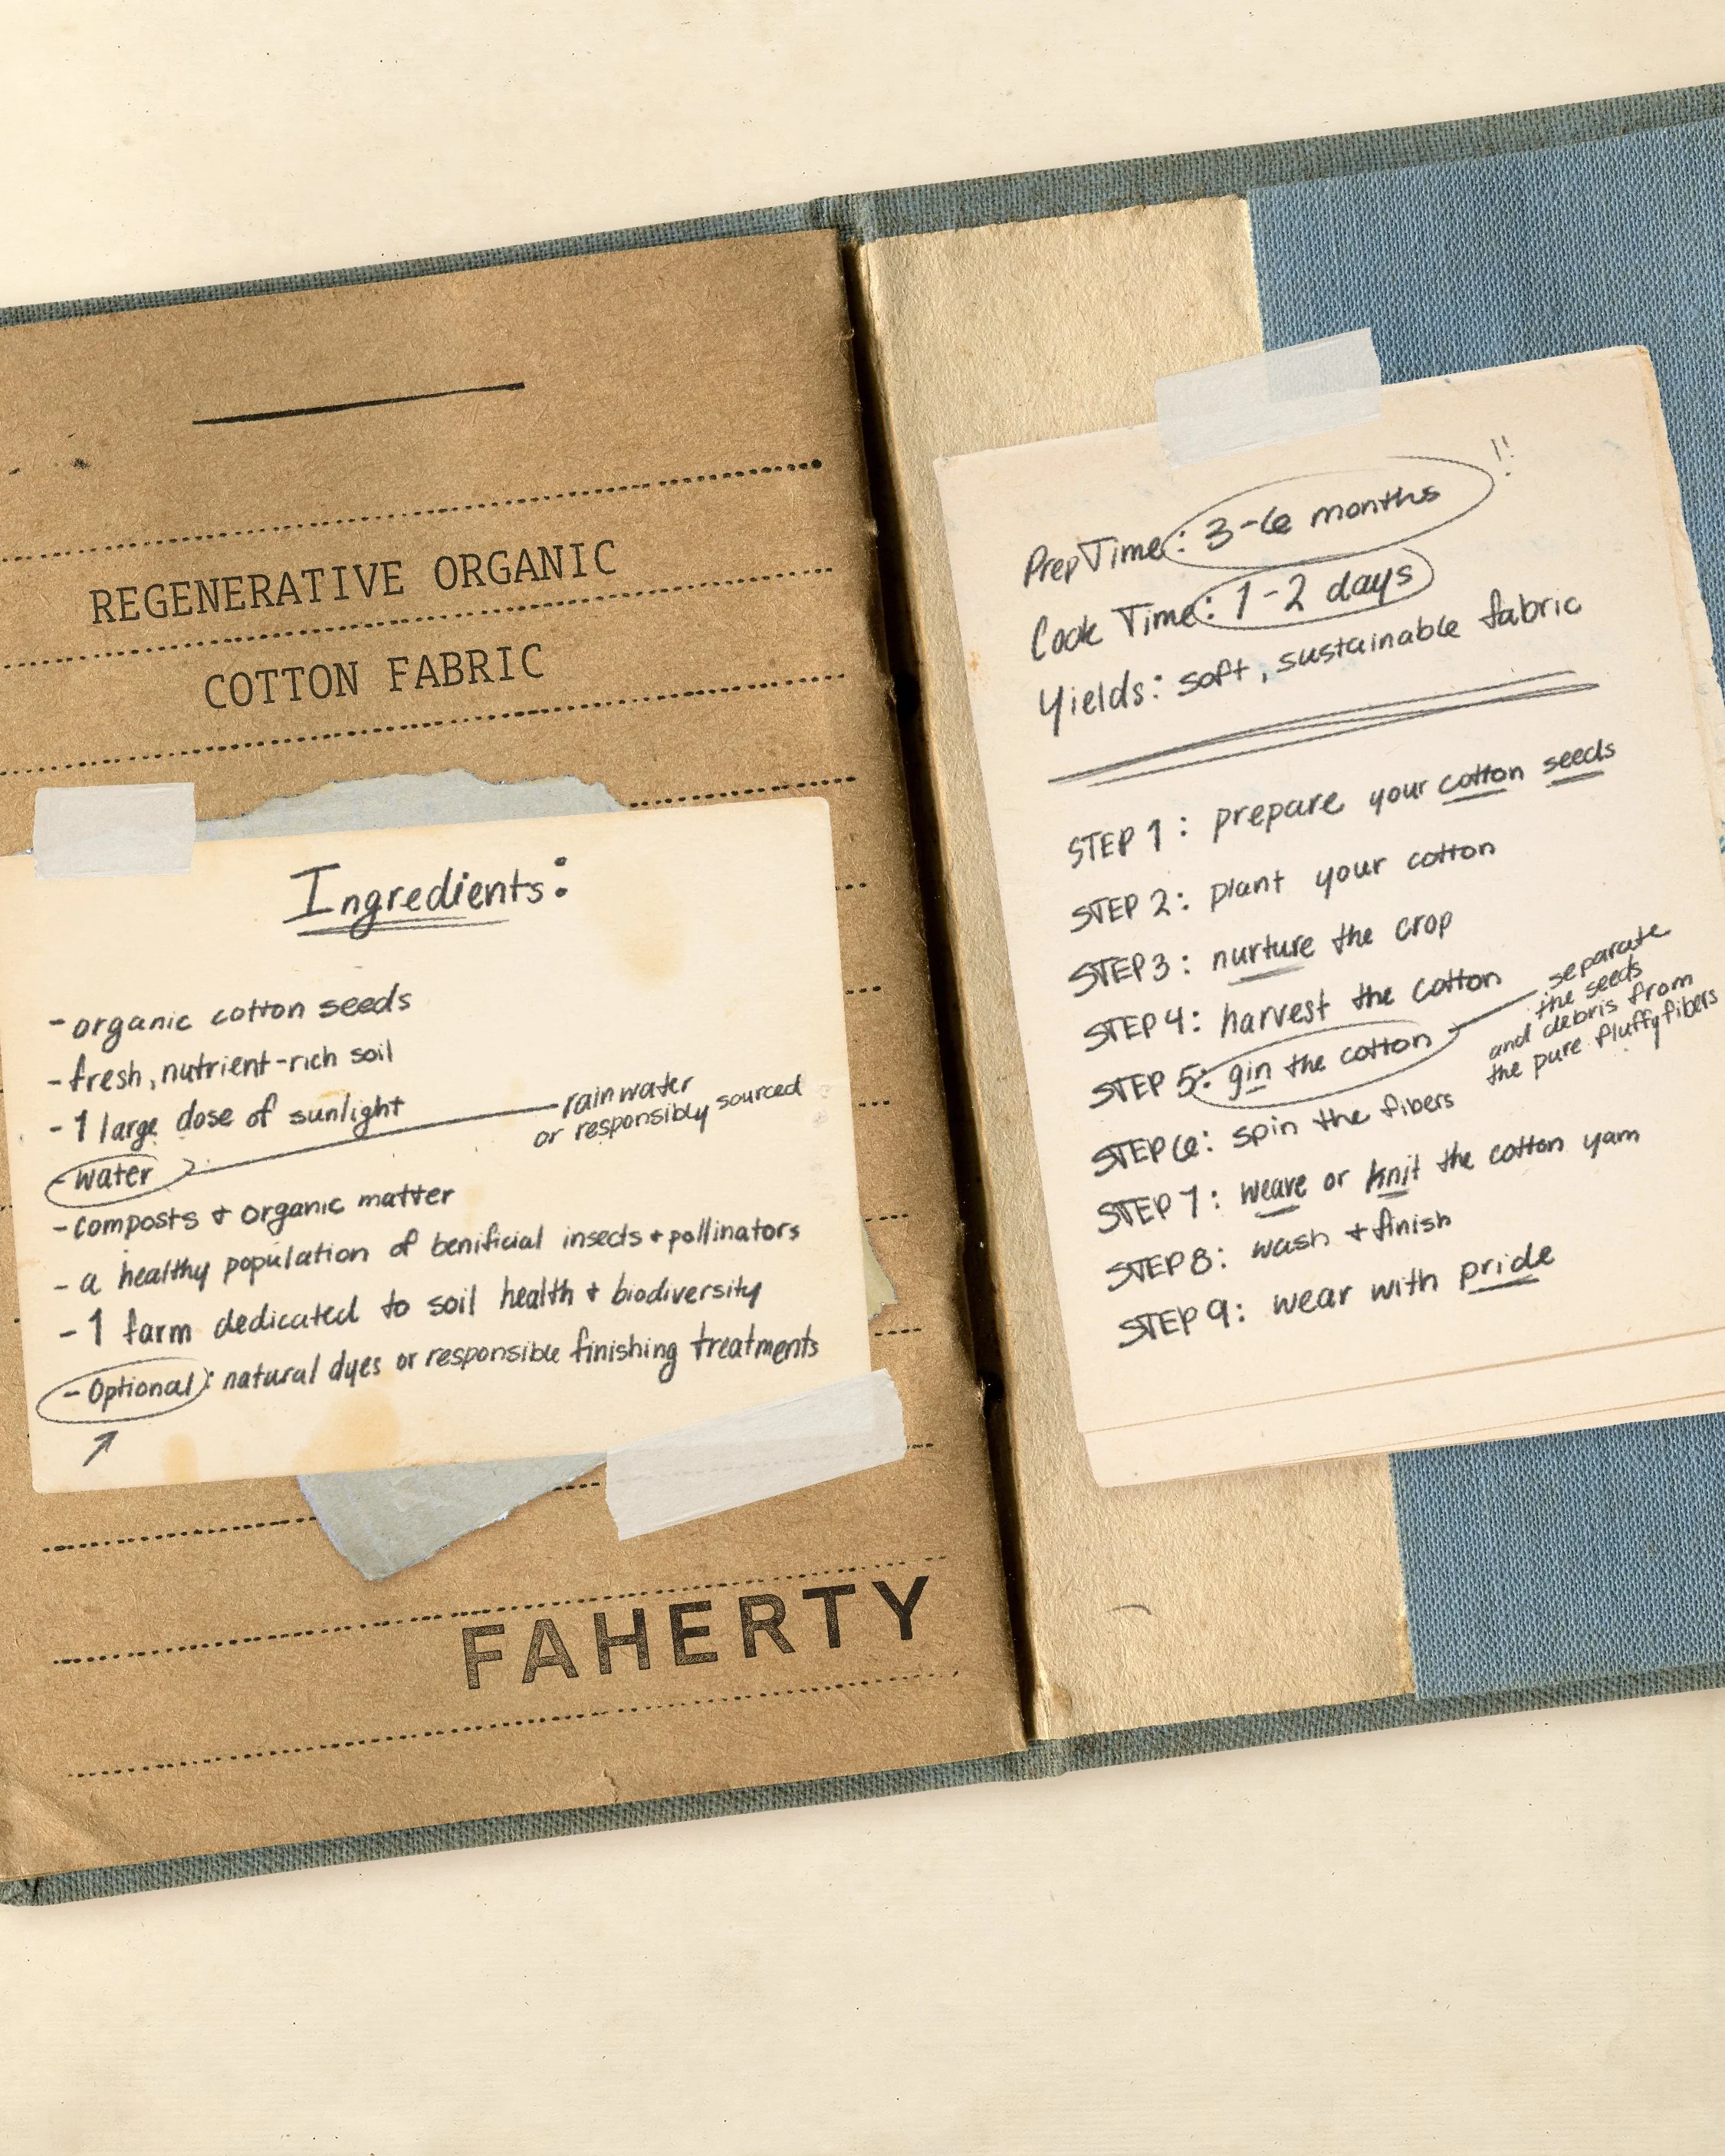 REGENERATIVE ORGANIC
COTTON FABRIC
Ingredients:
- organic cotton seeds
- fresh, nutrient-rich soil
- 1 large dose of sunlight
- water
rainwater
or responsibly sourced
- composts + organic matter
- a healthy population of benificial insects + pollinators
- 1 farm dedicated to soil health + biodiversity
- Optional: natural dyes or responsible finishing treatments
FAHERTY
Prep Time: 3-6 months !!
Cook Time: 1-2 days
Yields: soft, sustainable fabric
STEP 1: prepare your cotton seeds
STEP 2: plant your cotton
STEP 3: nurture the crop
STEP 4: harvest the cotton
STEP 5: gin the cotton
separate
the seeds
and debris from
the pure fluffy fibers
STEP 6: spin the fibers
STEP 7: weave or knit the cotton yarn
STEP 8: wash + finish
STEP 9: wear with pride